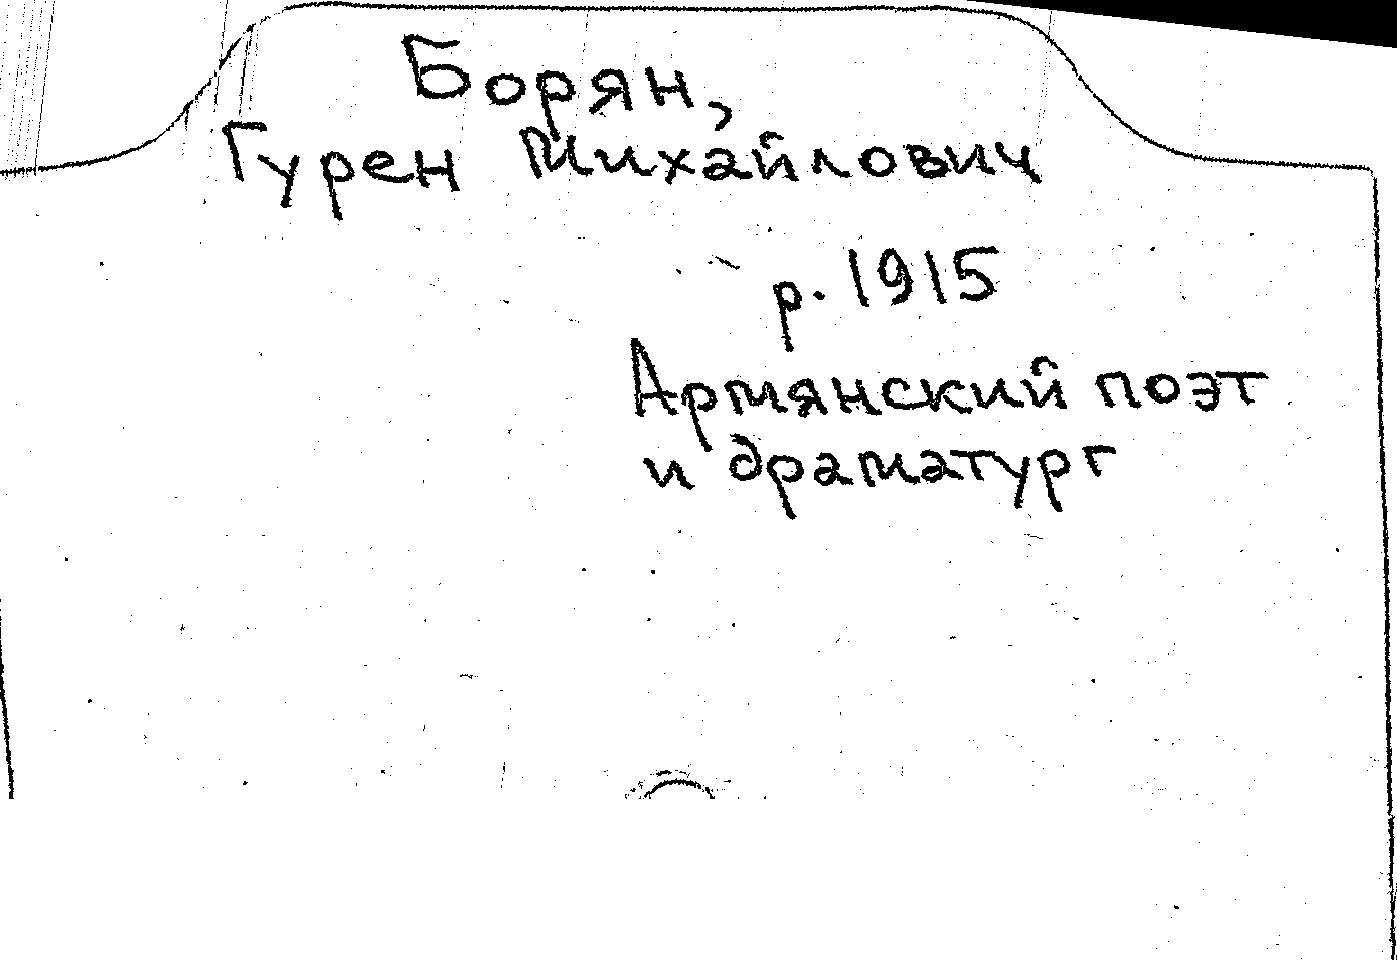 Борян,
Гурен Михайлович
р. 1915
Армянский поэт
и драматург